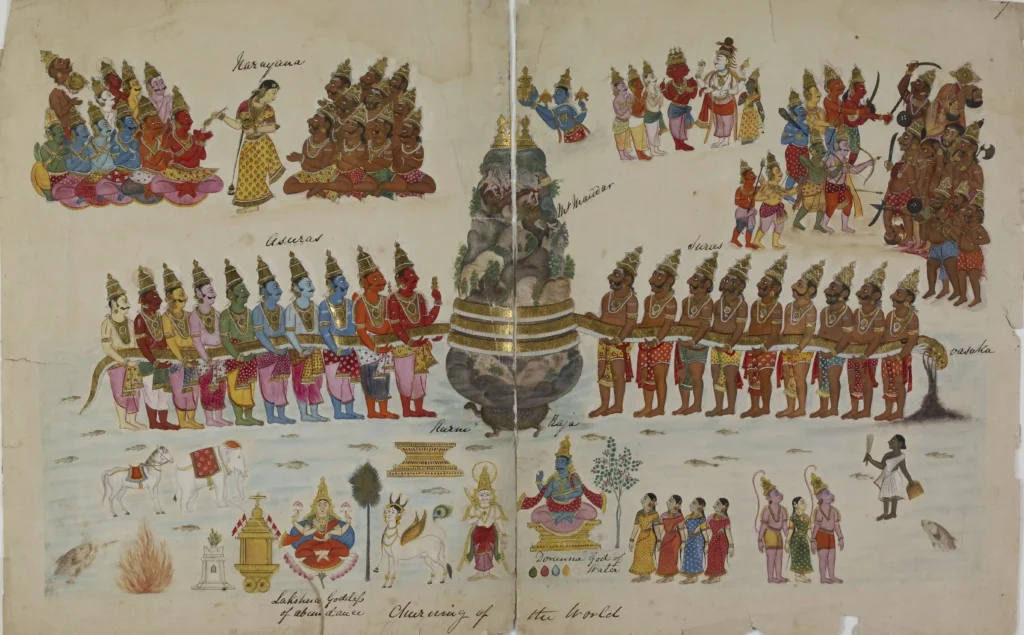 7
Narayana
Mt Mandar
Asuras
Suras
vasuka
Kurm Raja
Domunna God of
Water
Lakshmi Goddess
of abundance
Churning of the World